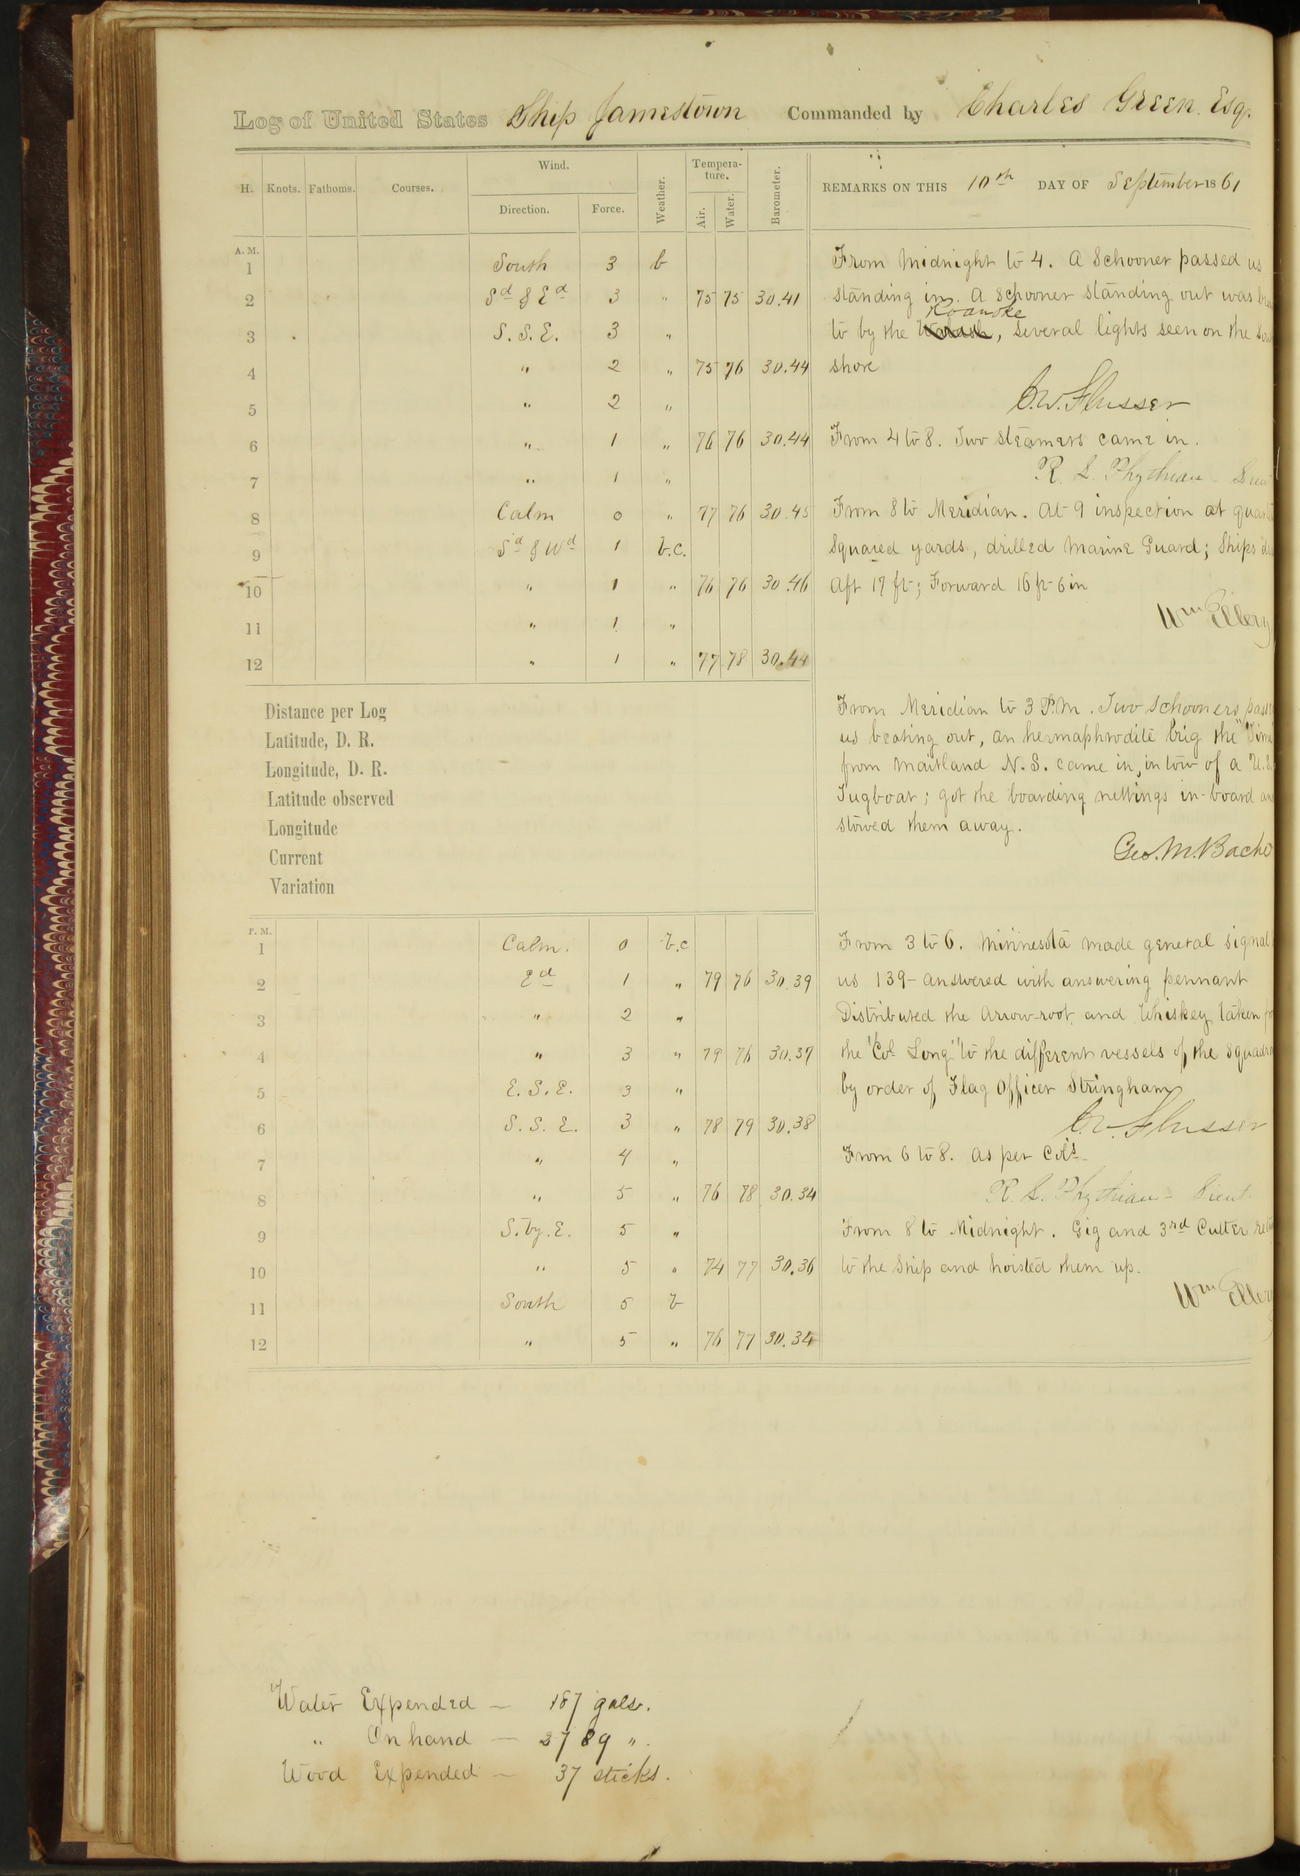 Log of United States Ship Jamestown Commanded by Charles Green. Esq.
H. Knots. Fathoms. Courses. Wind. Direction. Force. Weather. Tempera-ture. Air. Water. Barometer. REMARKS ON THIS 10th DAY OF September 1861
A. M.
1 South 3 b
2 Sd & Ed 3 " 75 75 30.41
3 S. S. E. 3 "
4 " 2 " 75 76 30.44
5 " 2 "
6 " 1 " 76 76 30.44
7 " 1 "
8 Calm 0 " 77 76 30.45
9 Sd & Wd 1 b.c.
10 " 1 " 76 76 30.46
11 " 1 "
12 " 1 " 77 78 30.44
From Midnight to 4. A Schooner passed us
standing in. A Schooner standing out was
Roanoke
to by the , Several lights seen on the
shore
C.W. Flusser
From 4 to 8. Two steamers came in.
R. L. Phythian Lieut
From 8 to Meridian. At 9 inspection at
Squared yards, drilled Marine Guard; Ships
Aft 17 ft; Forward 16 ft 6 in
Wm Ellery
Distance per Log
Latitude, D. R.
Longitude, D. R.
Latitude observed
Longitude
Current
Variation
From Meridian to 3 P.M. Two Schooners
us beating out, an hermaphrodite brig the
from Maitland N. S. came in, in tow of a U.S.
Tugboat; got the boarding nettings in-board
stowed them away.
Geo. M. Bache
P. M.
1 Calm. 0 b.c
2 Ed 1 " 79 76 30.39
3 " 2 "
4 " 3 " 79 76 30.39
5 E. S. E. 3 "
6 S. S. E. 3 " 78 79 30.38
7 " 4 "
8 " 5 " 76 78 30.34
9 S. by. E. 5 "
10 " 5 " 74 77 30.36
11 South 5 b
12 " 5 " 76 77 30.34
From 3 to 6. Minnesota made general signal
us 139 - answered with answering pennant
Distributed the Arrow-root and Whiskey taken
the "Col. Long" to the different vessels of the
by order of Flag Officer Stringham
C.W. Flusser
From 6 to 8. As per Cols.
R. L. Phythian - Lieut.
From 8 to Midnight. Gig and 3rd Cutter
to the Ship and hoisted them up.
Wm Ellery
Water Expended — 187 gals.
" On hand — 2789 ".
Wood Expended — 37 sticks.